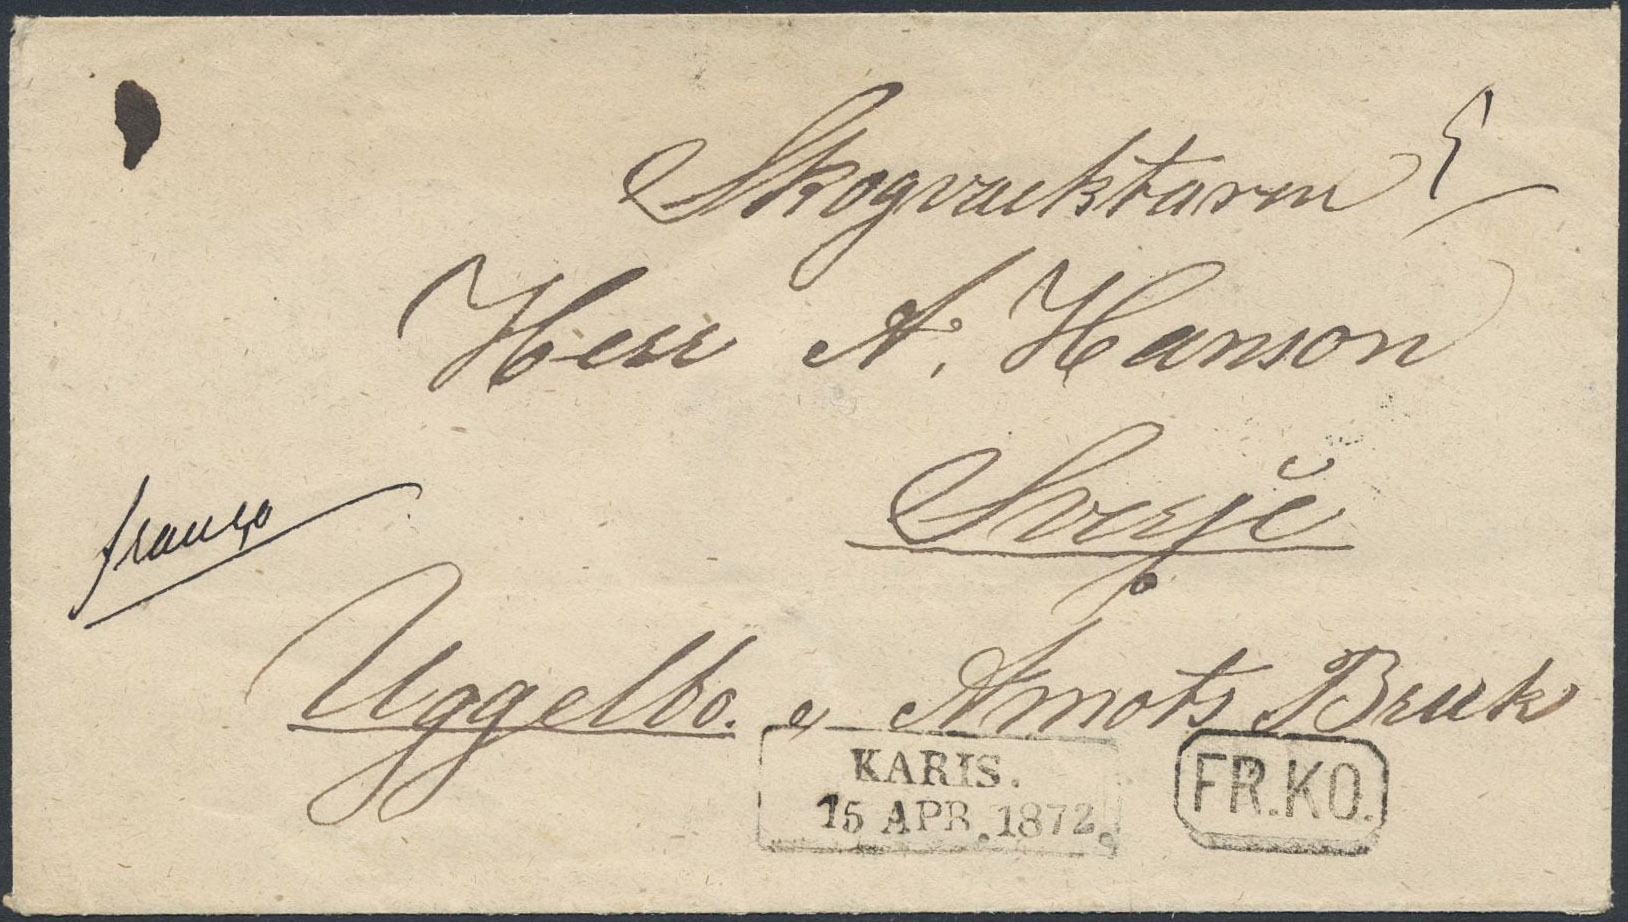 Skogvacktaren
Herr A. Hanson
Sverje
franco
Uggelbo. e, Amots Bruk
KARIS.
15 APR. 1872.
FR.KO.